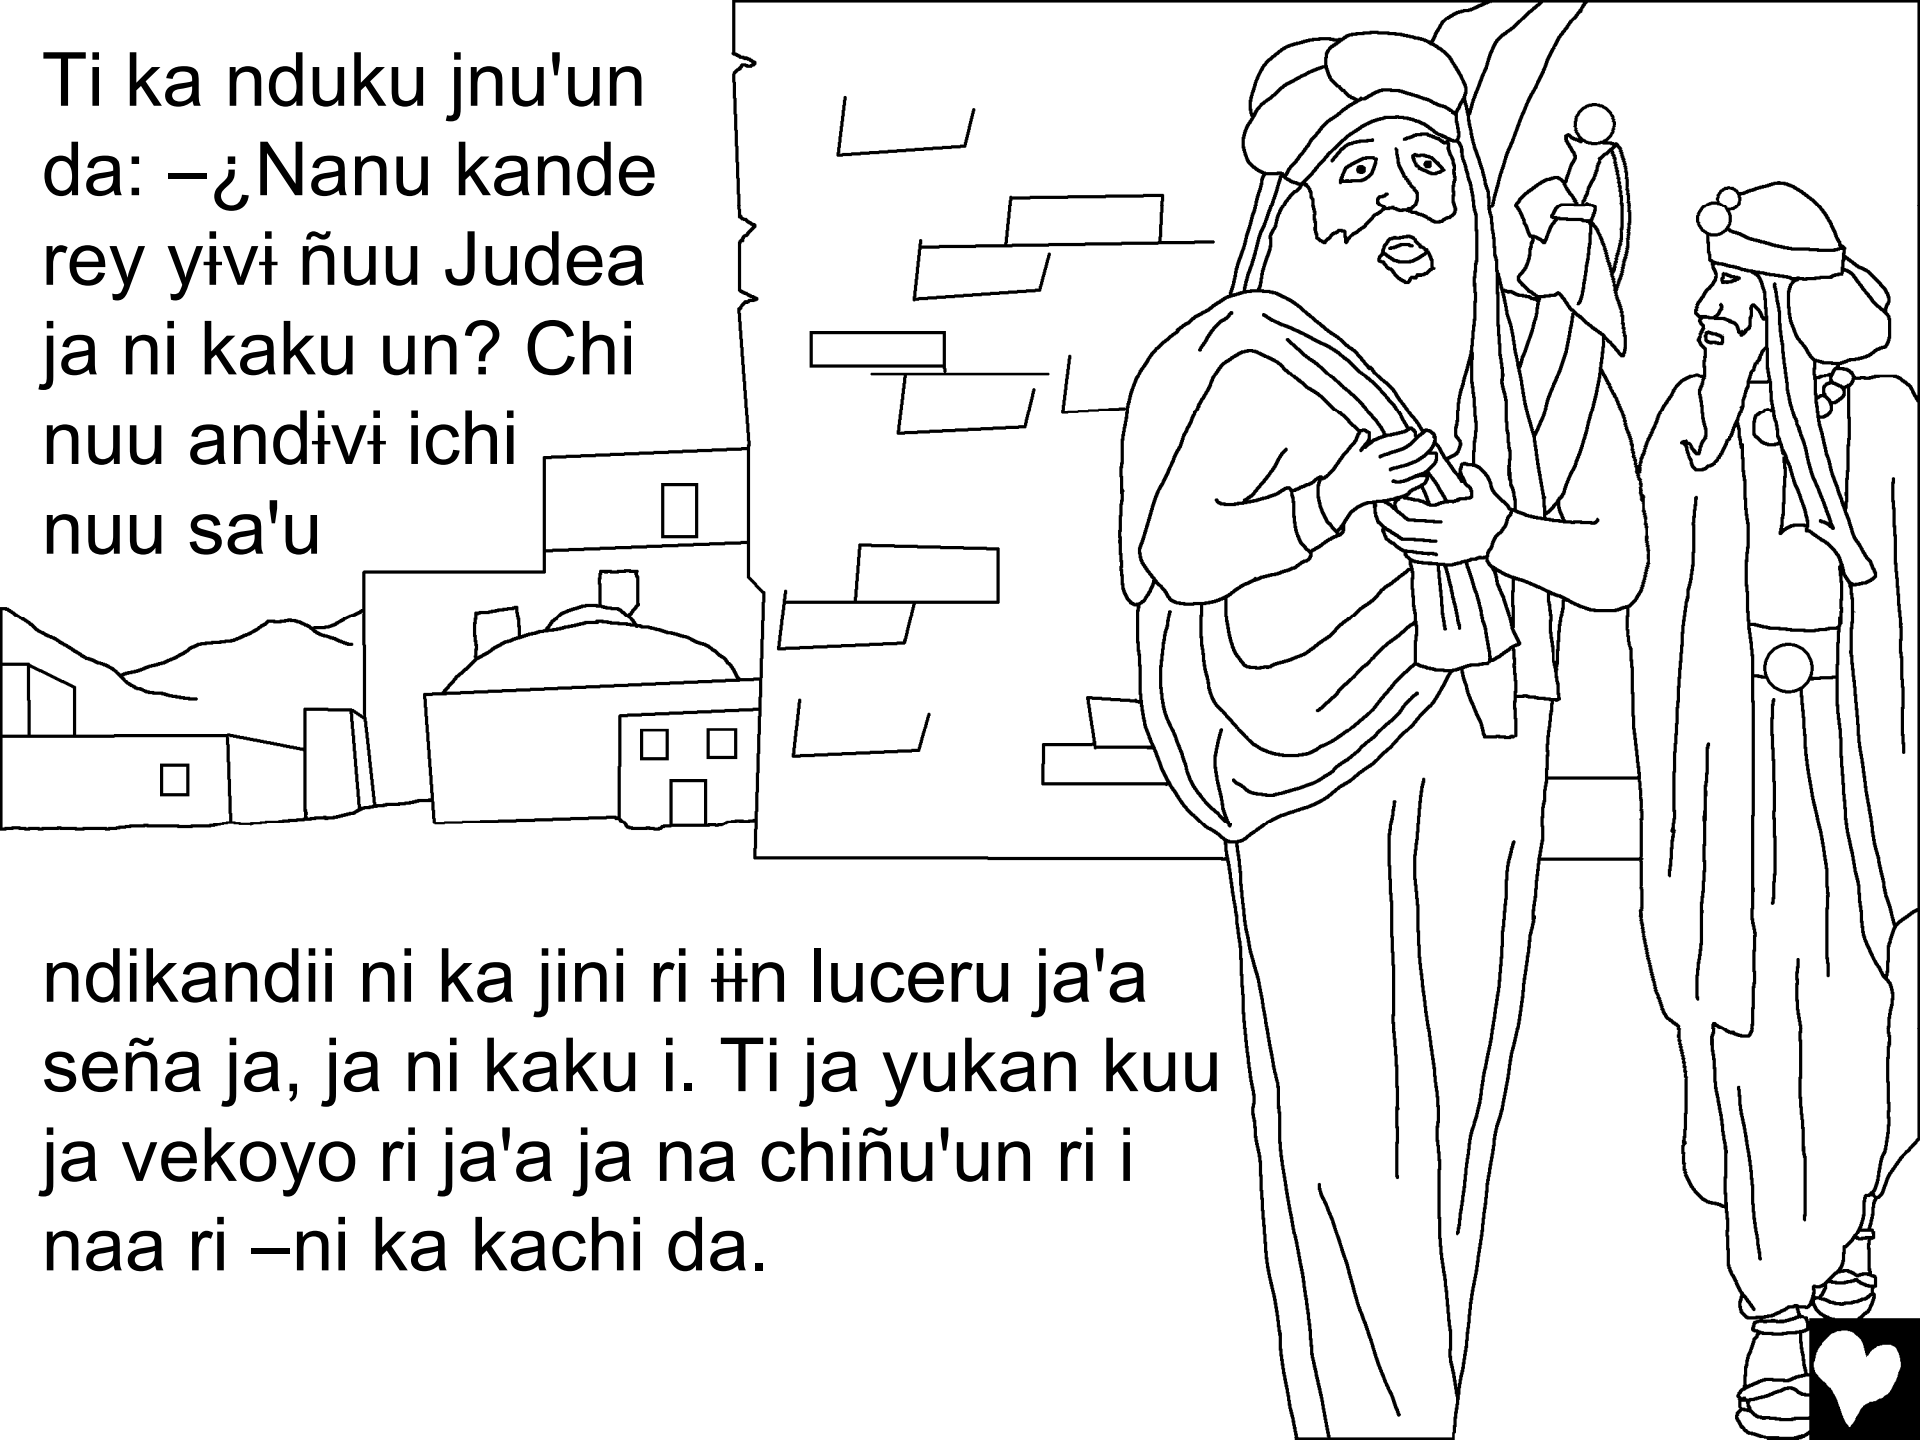 Ti ka nduku jnu'un
da: –¿Nanu kande
rey yɨvɨ ñuu Judea
ja ni kaku un? Chi
nuu andɨvɨ ichi
nuu sa'u
ndikandii ni ka jini ri ɨɨn luceru ja'a
seña ja, ja ni kaku i. Ti ja yukan kuu
ja vekoyo ri ja'a ja na chiñu'un ri i
naa ri –ni ka kachi da.